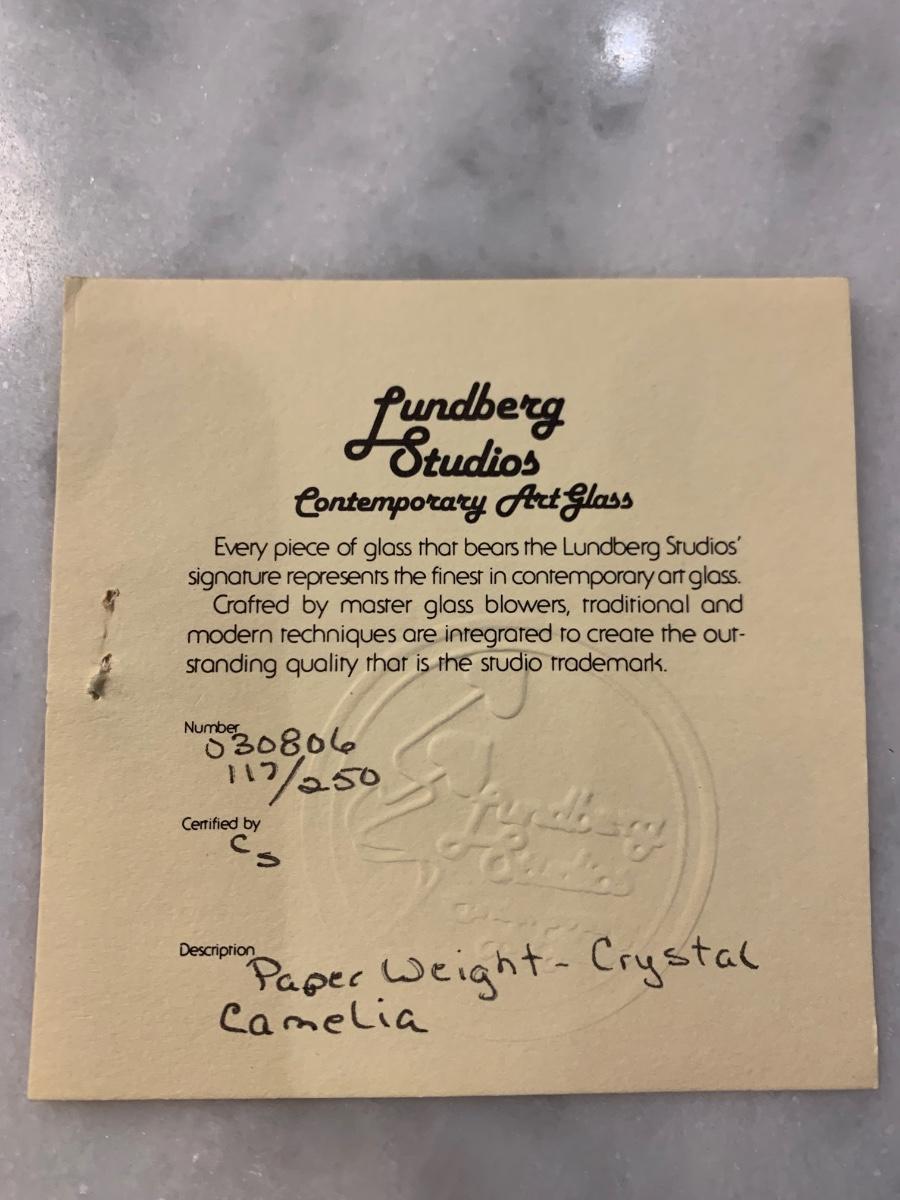 Lundberg
Studios
Contemporary Art Glass
Every piece of glass that bears the Lundberg Studios'
signature represents the finest in contemporary art glass.
Crafted by master glass blowers, traditional and
modern techniques are integrated to create the out-
standing quality that is the studio trademark.
Number
030806
117/250
Certified by
CS
Lundberg
Studios
Description
Paper Weight - Crystal
Camelia